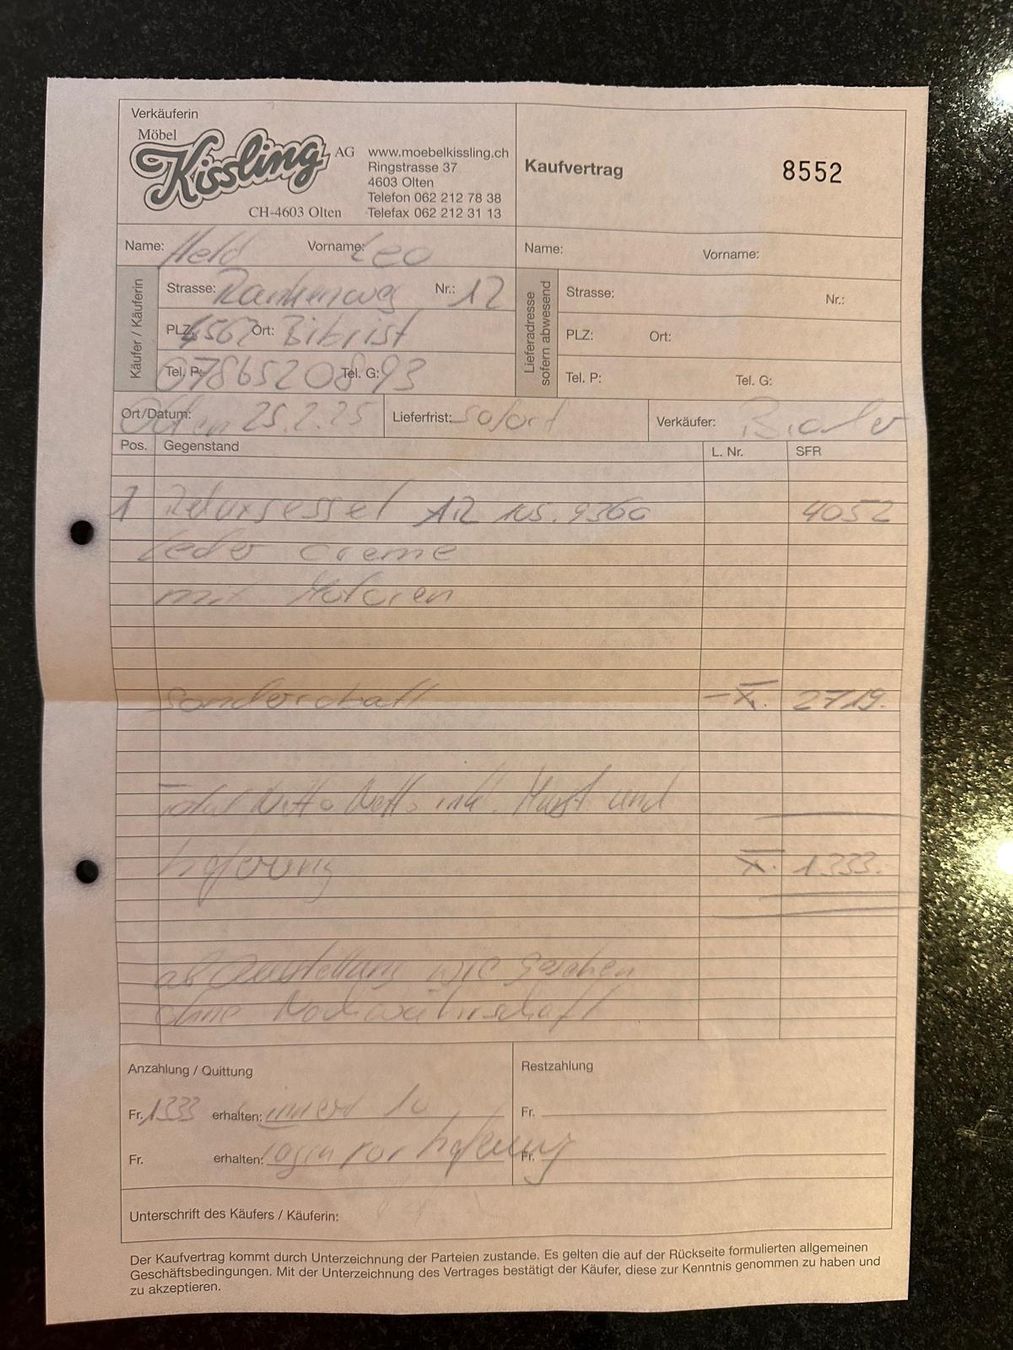 Verkäuferin
Möbel
Kissling AG
CH-4603 Olten
www.moebelkissling.ch
Ringstrasse 37
4603 Olten
Telefon 062 212 78 38
Telefax 062 212 31 13
Kaufvertrag 8552
Name: Held Vorname: Leo
Käufer / Käuferin
Strasse: Nr.: 12
PLZ: 4562 Ort: Biberist
Tel. P: Tel. G: 0786520893
Name: Vorname:
Lieferadresse
sofern abwesend
Strasse: Nr.:
PLZ: Ort:
Tel. P: Tel. G:
Ort/Datum: Olten 25.2.25 Lieferfrist: sofort Verkäufer:
Pos. Gegenstand L. Nr. SFR
1 Relaxsessel 4052
Leder creme
mit Motoren
Sonderrabatt 2719.
Total Netto Netto ink. und
Lieferung 1333.
ab Ausstellung wie gesehen
ohne Nachwährschaft
Anzahlung / Quittung
Fr. 1333 erhalten: innert 10
Fr. erhalten: Tagen vor Lieferung
Restzahlung
Fr.
Fr.
Unterschrift des Käufers / Käuferin:
Der Kaufvertrag kommt durch Unterzeichnung der Parteien zustande. Es gelten die auf der Rückseite formulierten allgemeinen
Geschäftsbedingungen. Mit der Unterzeichnung des Vertrages bestätigt der Käufer, diese zur Kenntnis genommen zu haben und
zu akzeptieren.